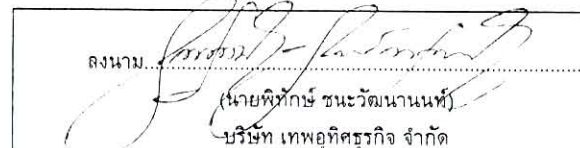 ลงนาม
(นายพิทักษ์ ชนะวัฒนานนท์)
บริษัท เทพอุทิศธุรกิจ จำกัด